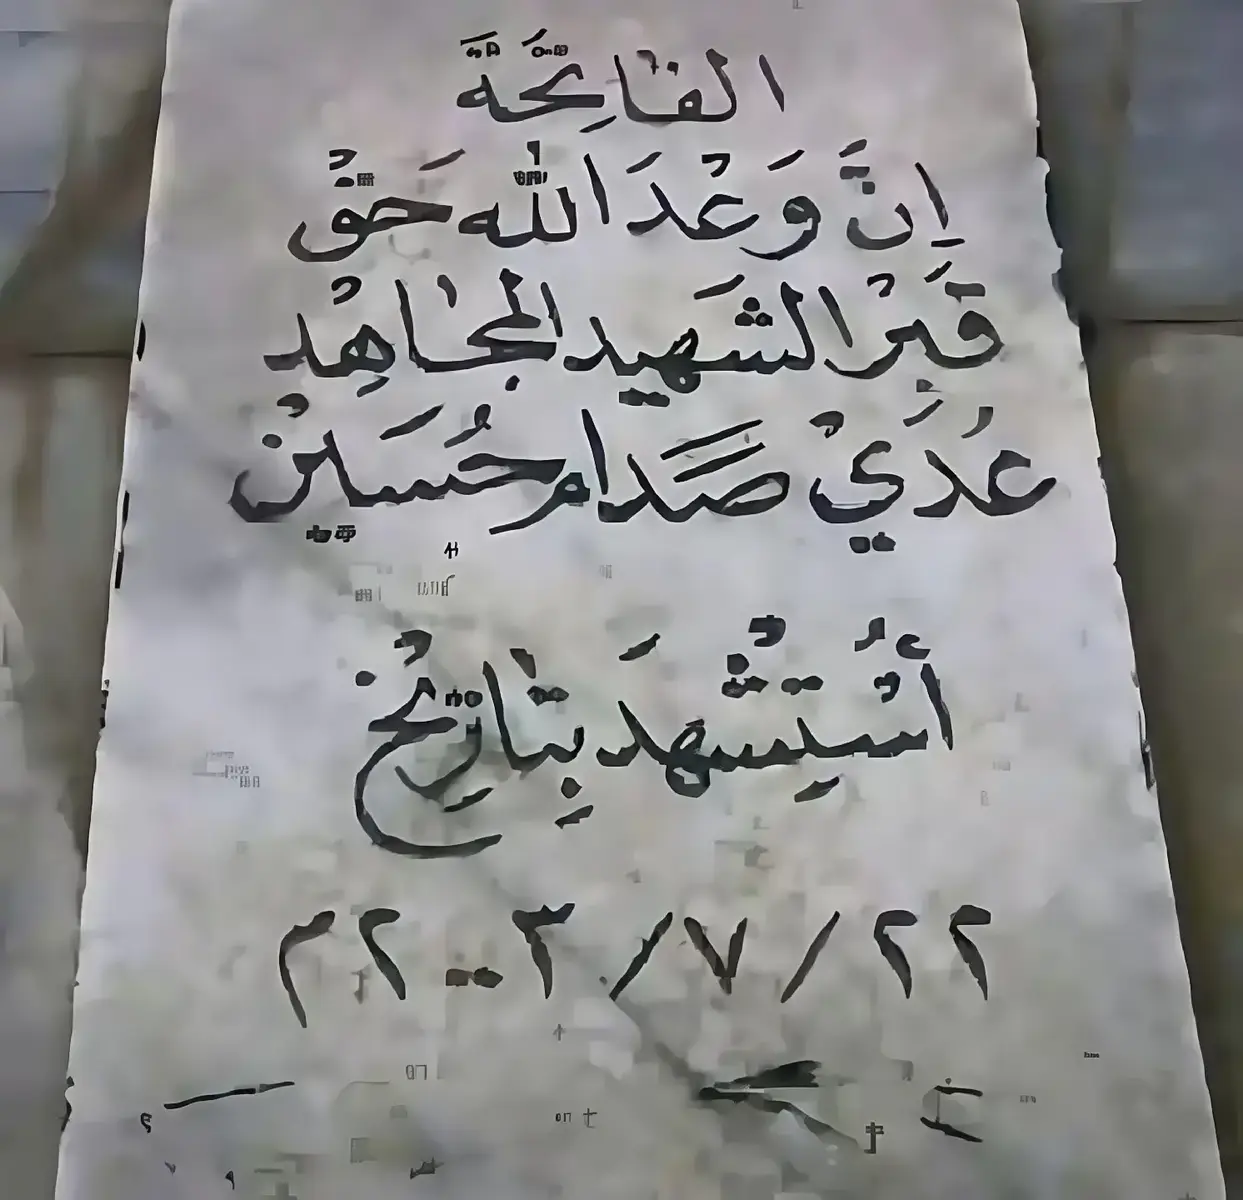 الفَاتِحَّةَ
اِنَّ وَعْدَ اللّٰه حَقْ
قَبِرْ الشَهيد المجَاهِدْ
عُدَيْ صَدَام حُسَينْ
أُسْتِشْهَدَ بِتَارِيخْ
٢٢/٧/٢٠٠٣م